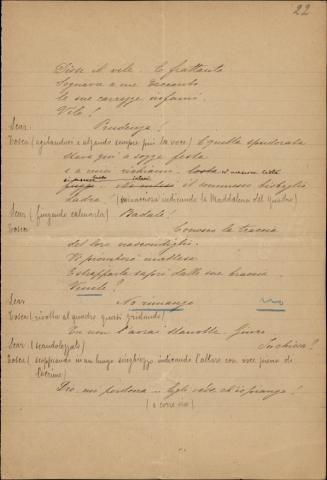 22
Dove il vile. E frattanto
Sognava a me daccanto
le sue carezze infami.
Vile!
Scar: Prudenza!
Tosca (agitandosi e alzando sempre più la voce) E quella spudorata
stava qui a sozza festa
e a miei richiami.
il sommesso bisbiglio
Ladra (minacciosa indicando la Maddalena del Quadro)
Scar (fingendo calmarla) Badate!
Tosca Conosco la traccia
del loro nascondiglio.
Vi piomberò inattesa
E strapparlo saprò dalle sue braccia
Venite?
Scar No rimango no
Tosca (rivolta al quadro quasi gridando)
Tu non l'avrai stanotte. Giuro
Scar (scandolezzato) In chiesa!
Tosca (scoppiando in un lungo singhiozzo indicando l'altare con voce piena di
lacrime)
Dio mi perdona.. Egli vede ch'io piango!
(e corre via)